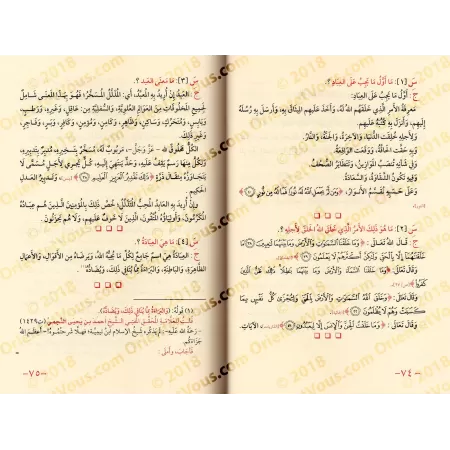 س [١]: مَا أَوَّلُ مَا يَجِبُ عَلَى العِبَادِ؟.
ج: أَوَّلُ مَا يَجِبُ عَلَى العِبَادِ:
مَعْرِفَةُ الأَمْرِ الَّذِي خَلَقَهُمُ اللهُ لَهُ، وَأَخَذَ عَلَيْهِمُ المِيثَاقَ بِهِ، وَأَرْسَلَ بِهِ رُسُلَهُ
إِلَيْهِمْ، وَأَنْزَلَ بِهِ كُتُبَهُ عَلَيْهِمْ.
وَلِأَجْلِهِ خُلِقَتِ الدُّنْيَا، وَالآخِرَةُ، وَالجَنَّةُ، وَالنَّارُ.
وَبِهِ حَقَّتِ الحَاقَّةُ، وَوَقَعَتِ الوَاقِعَةُ.
وَفِي شَأْنِهِ تُنْصَبُ المَوَازِينُ، وَتَتَطَايَرُ الصُّحُفُ.
وَفِيهِ تَكُونُ الشَّقَاوَةُ، وَالسَّعَادَةُ.
وَعَلَى حَسَبِهِ تُقْسَمُ الأَنْوَارُ، ﴿وَمَن لَّمْ يَجْعَلِ اللَّهُ لَهُ نُورًا فَمَا لَهُ مِن نُّورٍ﴾
س [٢]: مَا هُوَ ذَلِكَ الأَمْرُ الَّذِي خَلَقَ اللهُ الخَلْقَ لِأَجْلِهِ؟.
ج: قَالَ اللهُ تَعَالَى: ﴿وَمَا خَلَقْنَا السَّمَاوَاتِ وَالْأَرْضَ وَمَا بَيْنَهُمَا لَاعِبِينَ
وَقَالَ تَعَالَى: ﴿وَمَا خَلَقْنَا السَّمَاءَ وَالْأَرْضَ وَمَا بَيْنَهُمَا بَاطِلًا ذَلِكَ ظَنُّ الَّذِينَ
كَفَرُوا﴾
وَقَالَ تَعَالَى: ﴿وَخَلَقَ اللَّهُ السَّمَاوَاتِ وَالْأَرْضَ بِالْحَقِّ وَلِتُجْزَى كُلُّ نَفْسٍ بِمَا
كَسَبَتْ وَهُمْ لَا يُظْلَمُونَ﴾
وَقَالَ تَعَالَى: ﴿وَمَا خَلَقْتُ الْجِنَّ وَالْإِنسَ إِلَّا لِيَعْبُدُونِ﴾ الآيَاتِ.
-٧٤-
س [٣]: مَا مَعْنَى العَبْدِ؟.
ج: العَبْدُ إِنْ أُرِيدَ بِهِ المُعَبَّدُ، أَيْ: المُذَلَّلُ المُسَخَّرُ؛ فَهُوَ بِهَذَا المَعْنَى شَامِلٌ
لِجَمِيعِ المَخْلُوقَاتِ مِنَ العَوَالِمِ العُلْوِيَّةِ، وَالسُّفْلِيَّةِ مِنْ: عَاقِلٍ، وَغَيْرِهِ، وَرَطْبٍ،
وَيَابِسٍ، وَمُتَحَرِّكٍ، وَسَاكِنٍ، وَظَاهِرٍ، وَكَامِنٍ، وَمُؤْمِنٍ، وَكَافِرٍ، وَبَرٍّ، وَفَاجِرٍ،
الكُلُّ مَخْلُوقٌ للهِ - عَزَّ وَجَلَّ -، مَرْبُوبٌ لَهُ، مُسَخَّرٌ بِتَسْخِيرِهِ، مُدَبَّرٌ بِتَدْبِيرِهِ،
وَلِكُلٍّ مِنْهَا رَسْمٌ يَقِفُ عَلَيْهِ، وَحَدٌّ يَنْتَهِي إِلَيْهِ، كُلٌّ يَجْرِي لِأَجَلٍ مُسَمًّى لَا
يَتَجَاوَزُهُ مِثْقَالَ ذَرَّةٍ ﴿ذَلِكَ تَقْدِيرُ الْعَزِيزِ الْعَلِيمِ﴾، وَتَدْبِيرُ العَدْلِ
الحَكِيمِ.
وَإِنْ أُرِيدَ بِهِ العَابِدُ المُحِبُّ المُتَذَلِّلُ، خُصَّ ذَلِكَ بِالمُؤْمِنِينَ الَّذِينَ هُمْ عِبَادُهُ
المُكْرَمُونَ، وَأَوْلِيَاؤُهُ المُتَّقُونَ، الَّذِينَ لَا خَوْفٌ عَلَيْهِمْ، وَلَا هُمْ يَحْزَنُونَ.
س [٤]: مَا هِيَ العِبَادَةُ؟.
ج: العِبَادَةُ هِيَ اسْمٌ جَامِعٌ لِكُلِّ مَا يُحِبُّهُ اللهُ، وَيَرْضَاهُ مِنَ الأَقْوَالِ، وَالأَعْمَالِ
الظَّاهِرَةِ، وَالبَاطِنَةِ، وَالبَرَاءَةُ مِمَّا يُنَافِي ذَلِكَ، وَيُضَادُّهُ
(١) قَوْلُهُ: (وَالبَرَاءَةُ مِمَّا يُنَافِي ذَلِكَ، وَيُضَادُّهُ):
الشَّيْخُ أَحْمَدُ بْنُ يَحْيَى النَّجْمِيُّ (ت١٤٢٩)
شَيْخُ الإِسْلَامِ ابْنُ تَيْمِيَّةَ،
-٧٥-